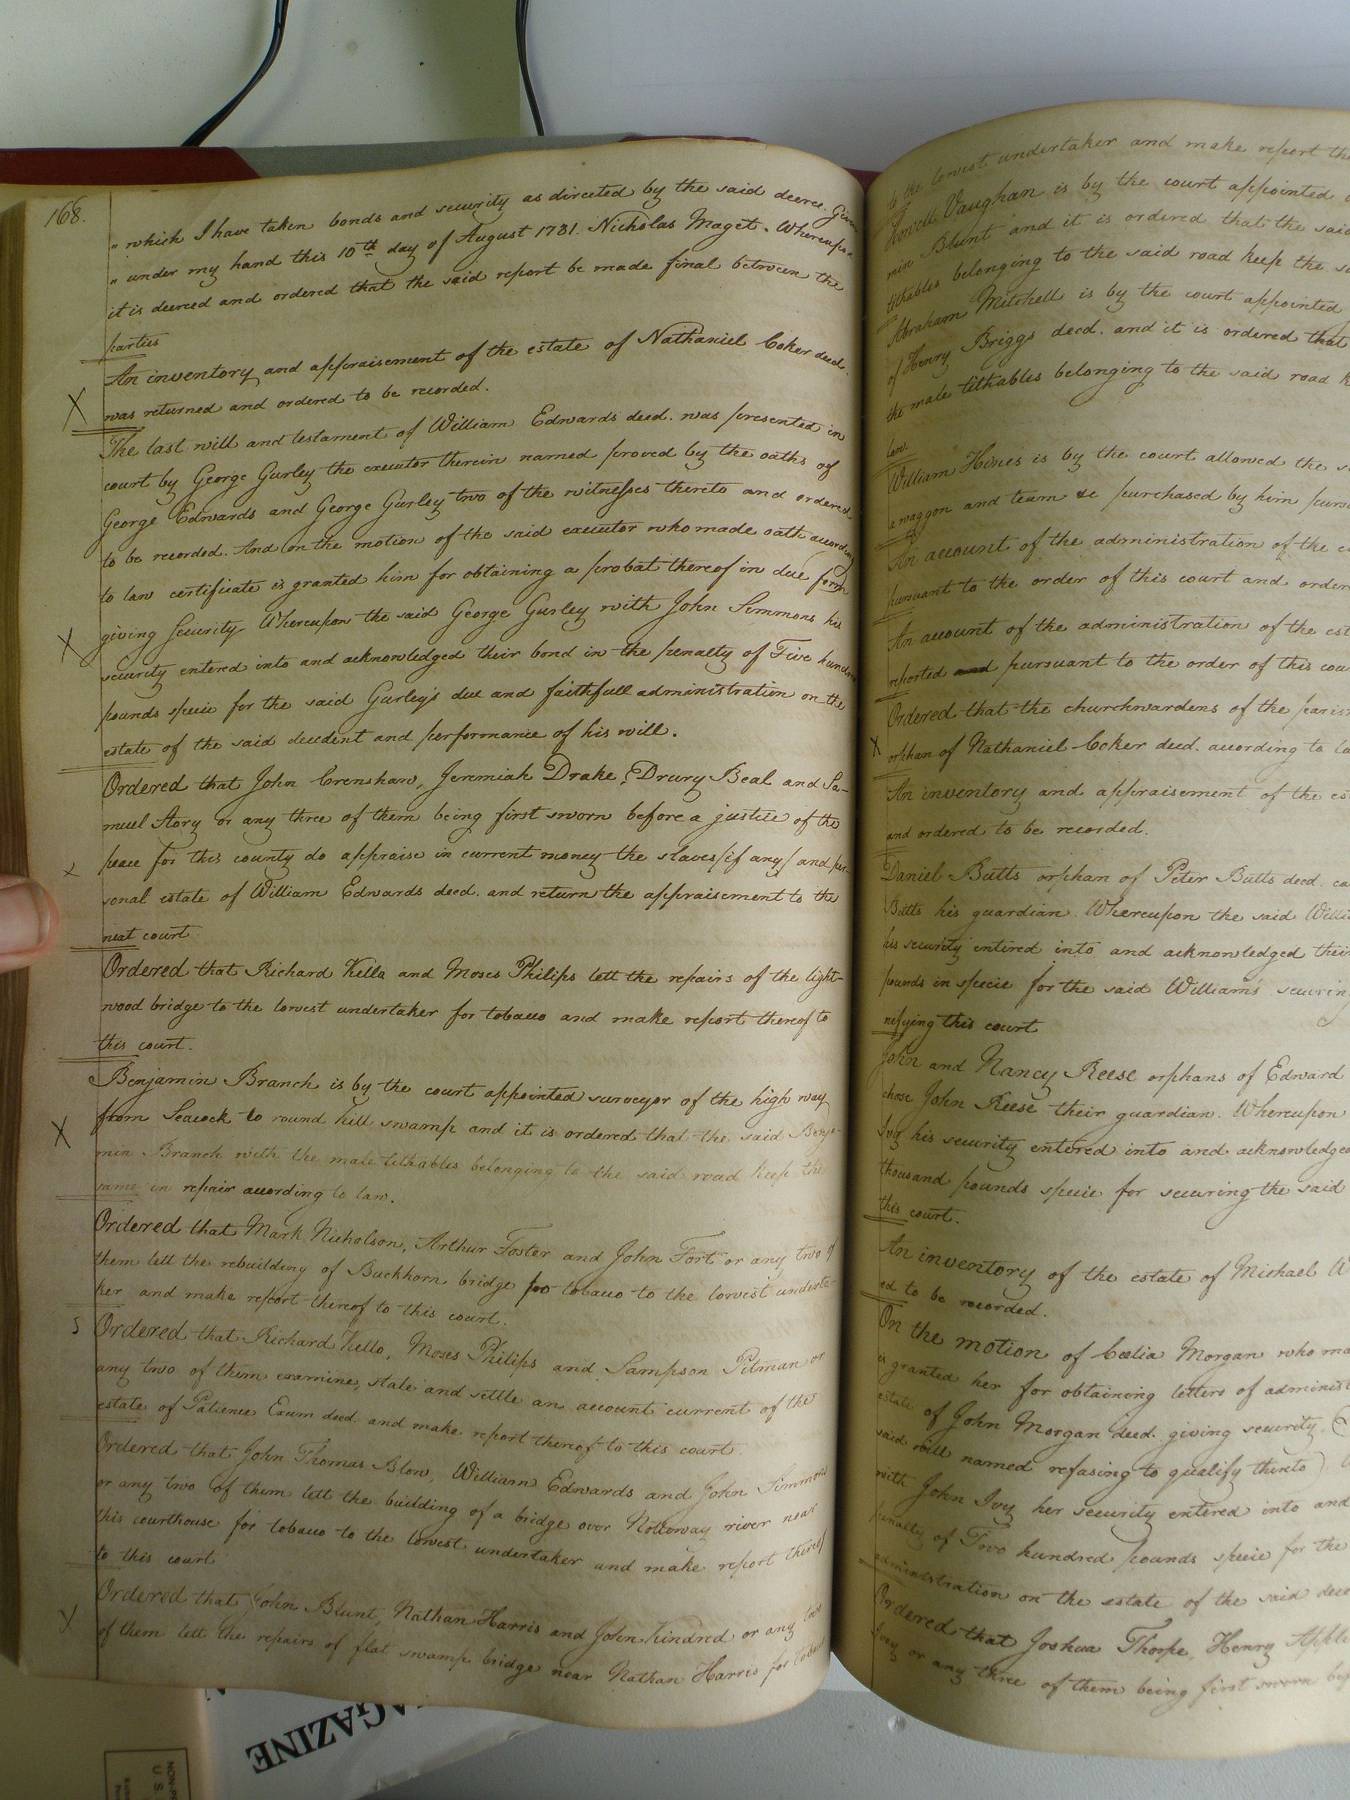 168.
" which I have taken bonds and security as directed by the said decree. Given
" under my hand this 10th day of August 1781. Nicholas Maget. Whereupon
it is decreed and ordered that the said report be made final between the
parties
An inventory and appraisement of the estate of Nathaniel Coker decd.
was returned and ordered to be recorded.
The last will and testament of William Edwards decd. was presented in
court by George Gurley the executor therein named proved by the oaths of
George Edwards and George Gurley two of the witnesses thereto and ordered
to be recorded. And on the motion of the said executor who made oath according
to law certificate is granted him for obtaining a probat thereof in due form
giving security Whereupon the said George Gurley with John Simmons his
security entered into and acknowledged their bond in the penalty of Five hundred
pounds specie for the said Gurley's due and faithfull administration on the
estate of the said decedent and performance of his will.
Ordered that John Crenshaw, Jeremiah Drake, Drury Beal and Sa-
muel Story or any three of them being first sworn before a justice of the
peace for this county do appraise in current money the slaves/if any/ and per-
sonal estate of William Edwards decd. and return the appraisement to the
next court
Ordered that Richard Kello and Moses Philips lett the repairs of the light-
wood bridge to the lowest undertaker for tobacco and make report thereof to
this court.
Benjamin Branch is by the court appointed surveyor of the high way
from Seacock to round hill swamp and it is ordered that the said Benja-
min Branch with the male tithables belonging to the said road keep the
same in repair according to law.
Ordered that Mark Nicholson, Arthur Foster and John Fort or any two of
them lett the rebuilding of Buckhorn bridge for tobacco to the lowest underta-
ker and make report thereof to this court.
Ordered that Richard Kello, Moses Philips and Sampson Pitman or
any two of them examine, state and settle an account current of the
estate of Patience Exum decd. and make report thereof to this court.
Ordered that John Thomas Blow, William Edwards and John Simmons
or any two of them lett the building of a bridge over Nottoway river near
this courthouse for tobacco to the lowest undertaker and make report thereof
to this court
Ordered that John Blunt, Nathan Harris and John Kindred or any two
of them lett the repairs of flat swamp bridge near Nathan Harris for tobacco
to the lowest undertaker and make report the
Howell Vaughan is by the court appointed
min Blunt and it is ordered that the said
tithables belonging to the said road keep the
Abraham Mitchell is by the court appointed
of Henry Briggs decd. and it is ordered that
the male tithables belonging to the said road
law.
William Hines is by the court allowed the
a waggon and team &c purchased by him pursu
An account of the administration of the
pursuant to the order of this court and order
An account of the administration of the est
reported pursuant to the order of this cou
Ordered that the churchwardens of the paris
orphan of Nathaniel Coker decd. according to la
An inventory and appraisement of the es
and ordered to be recorded.
Daniel Butts orphan of Peter Butts decd. ca
Butts his guardian. Whereupon the said Willi
his security entered into and acknowledged their
pounds in specie for the said William's securin
nifying this court
John and Nancy Reese orphans of Edward
chose John Reese their guardian. Whereupon
Ivy his security entered into and acknowledge
thousand pounds specie for securing the said
this court.
An inventory of the estate of Michael
ed to be recorded.
On the motion of Coelia Morgan who ma
is granted her for obtaining letters of administ
estate of John Morgan decd. giving security.
said will named refusing to qualify thereto)
with John Ivy her security entered into and
penalty of Two hundred pounds specie for the
administration on the estate of the said dece
Ordered that Joshua Thorpe, Henry Apple
Ivey or any three of them being first sworn bef
MAGAZINE
U. S.